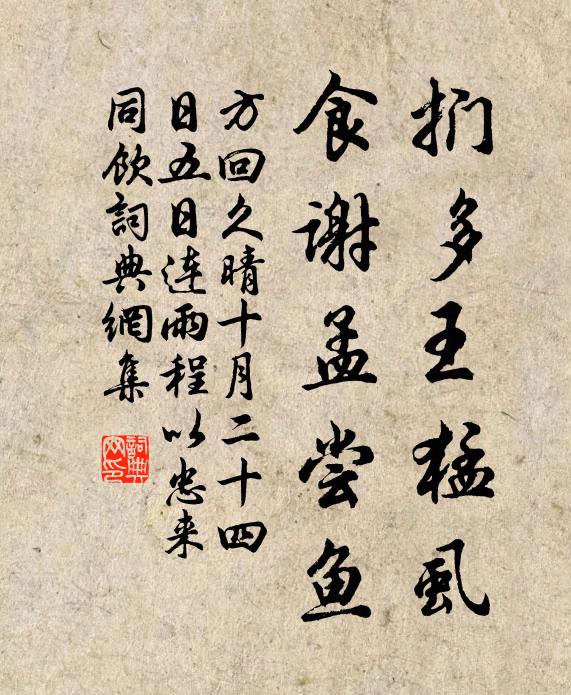 扪多王猛虱
食谢孟尝鱼
方回久晴十月二十四
日五日连雨程以忠来
同饮詞典網集
詞典网印